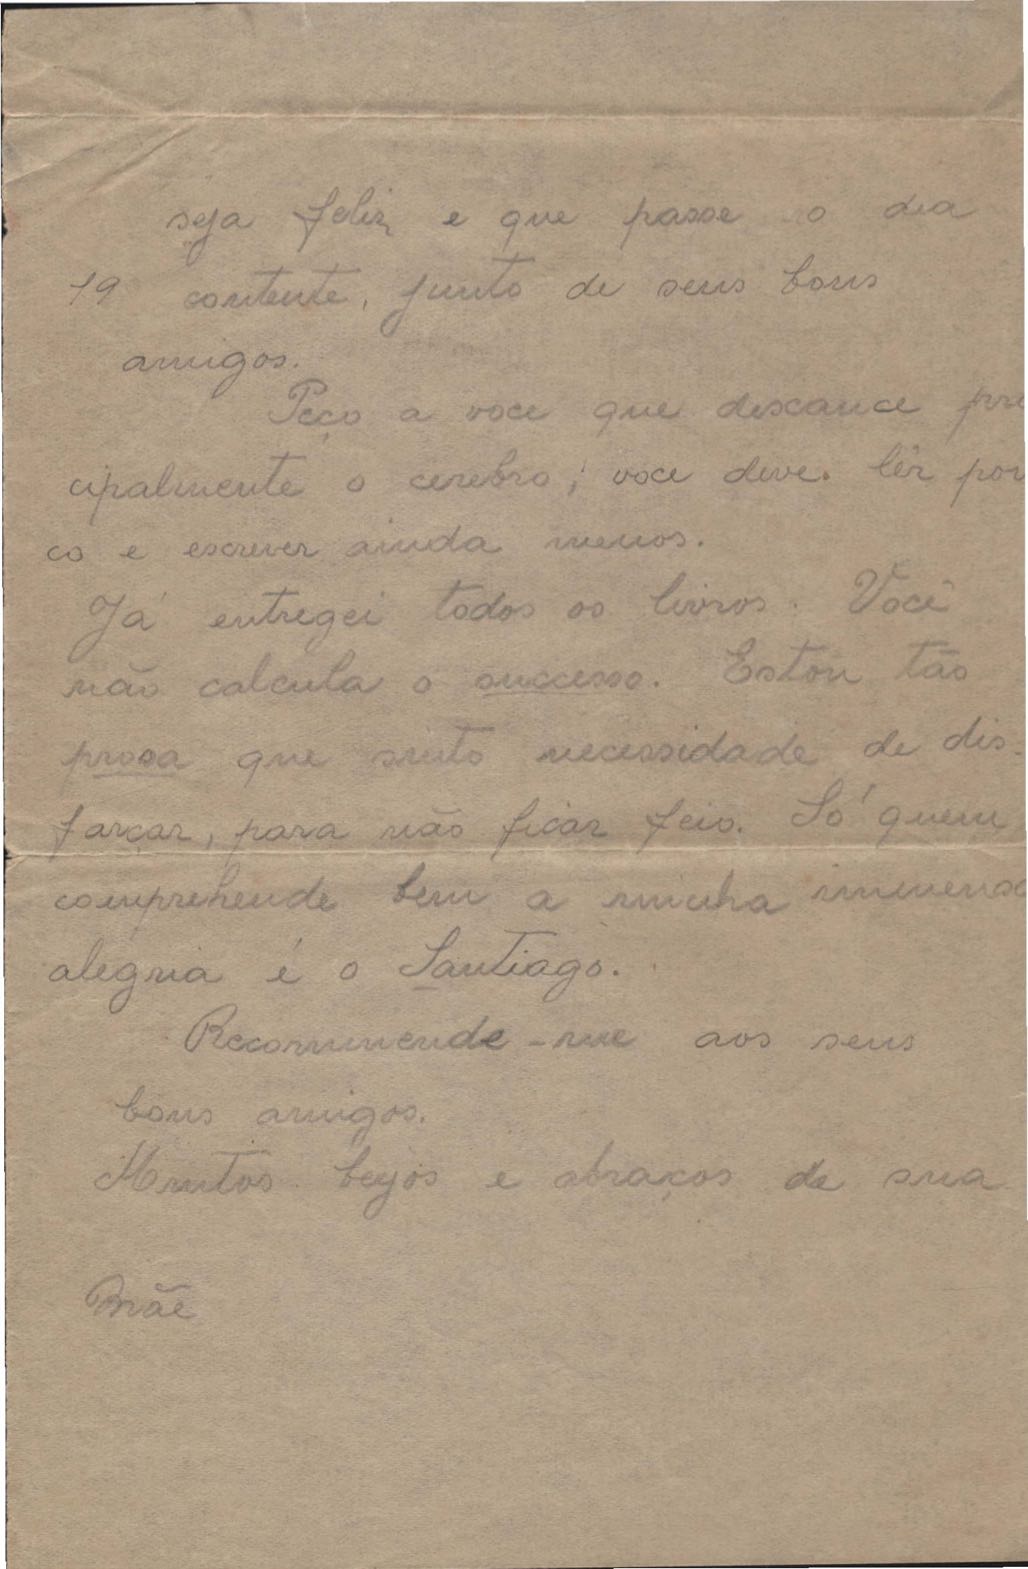 seja feliz e que passe o dia
19 contente, junto de seus bons
amigos.
Peço a voce que descance prin
cipalmente o cerebro; voce deve lêr pou
co e escrever ainda menos.
Já entregei todos os livros. Você
não calcula o successo. Estou tão
prosa que sinto necessidade de dis-
farçar, para não ficar feio. Só quem
comprehende bem a minha immensa
alegria é o Santiago.
Recommende-me aos seus
bons amigos.
Muitos beijos e abraços de sua
Mãe